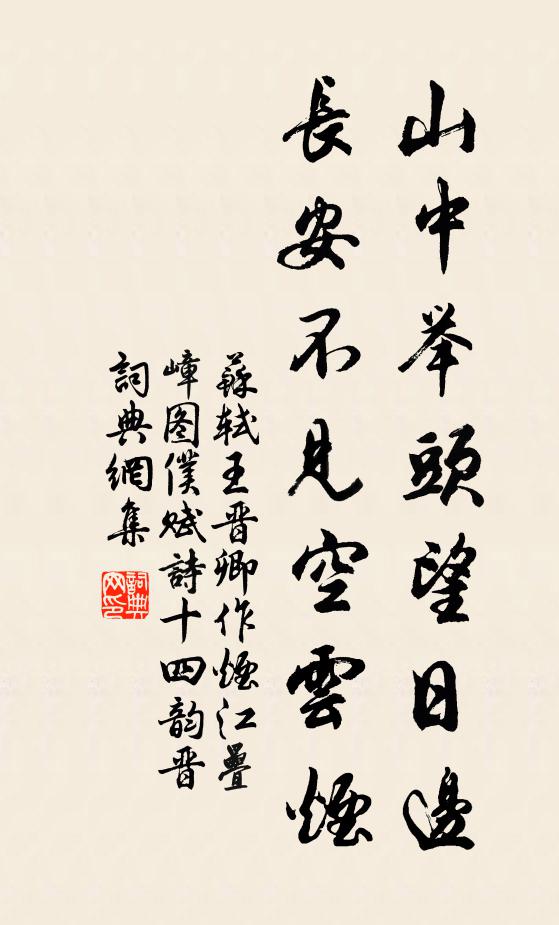 山中举頭望日邊
長安不見空雲煙
蘇軾王晋卿作煙江疊
嶂图僕賦詩十四韵晋
詞典網集
詞典
网印